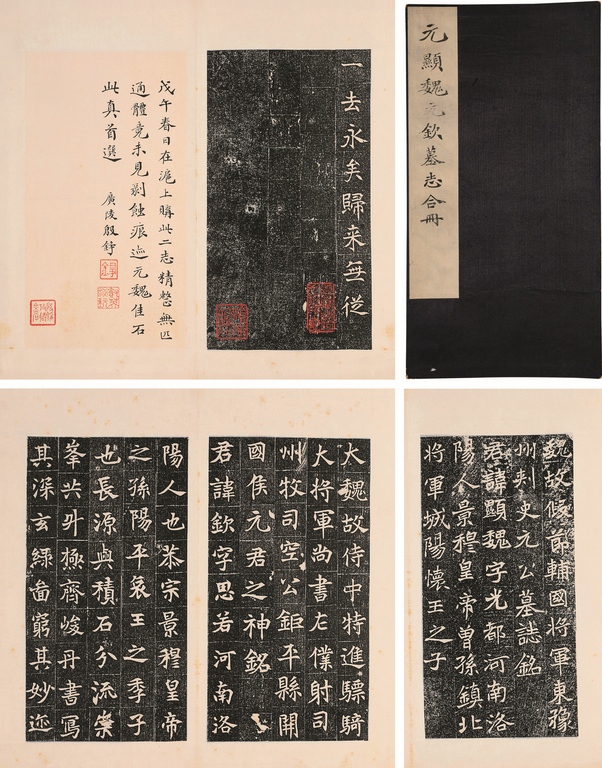 元顯魏元欽墓志合冊
一去永矣歸来無從
戊午春日在滬上購此二志精整無匹
通體竟未見剝蝕痕迹元魏佳石
此真首選
廣陵殷錚
魏故假節輔國將軍東豫
州刾史元公墓誌銘
君諱顯魏字光都河南洛
陽人景穆皇帝曾孫鎮北
將軍城陽懷王之子
大魏故侍中特進驃騎
大將軍尚書左僕射司
州牧司空公鉅平縣開
國侯元君之神銘
君諱欽字思若河南洛
陽人也恭宗景穆皇帝
之孫陽平哀王之季子
也長源與積石分流崇
峯共升極齊峻丹書寫
其深玄綠啚窮其妙迹